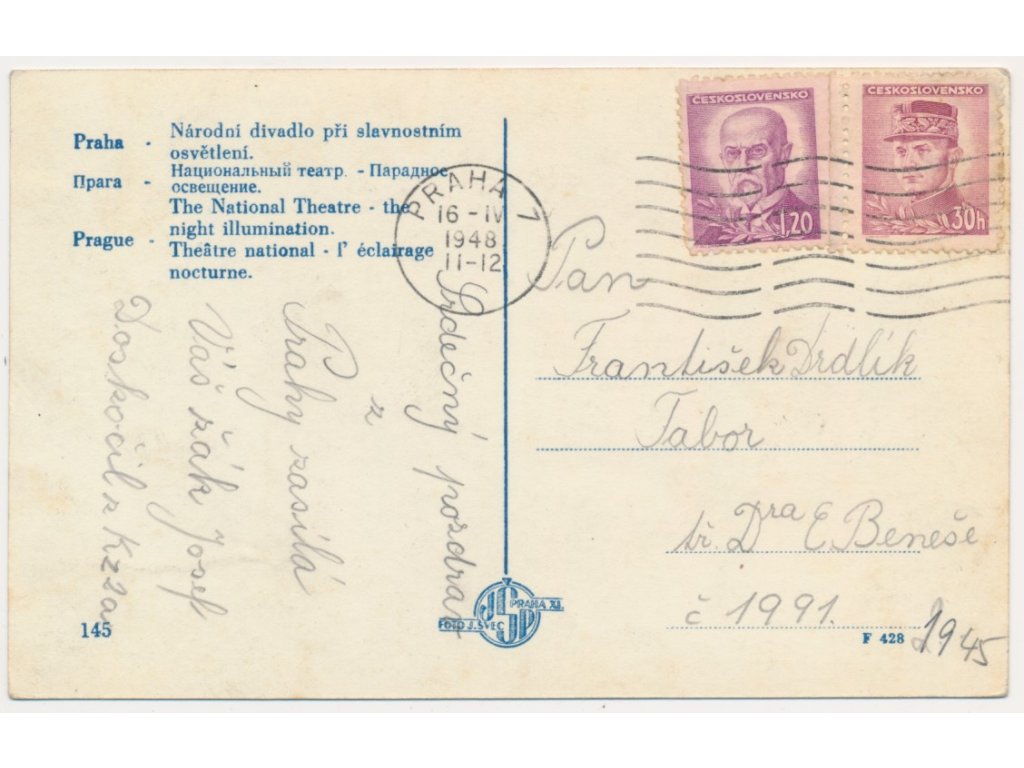 Praha - Národní divadlo při slavnostním
osvětlení.
Прага - Национальный театр. - Парадное
освещение.
The National Theatre - the
night illumination.
Prague - Theâtre national - l' éclairage
nocturne.
PRAHA 1
16 - IV
1948
11-12
ČESKOSLOVENSKO
1,20
ČESKOSLOVENSKO
30h
Srdečný pozdrav
z
Prahy zasílá
Váš žák Josef
Doskočil z
Pan
František Drdlík
Tábor
tř. Dra E. Beneše
č 1991.
145
JŠP
PRAHA XI.
FOTO J. ŠVEC
F 428
1945